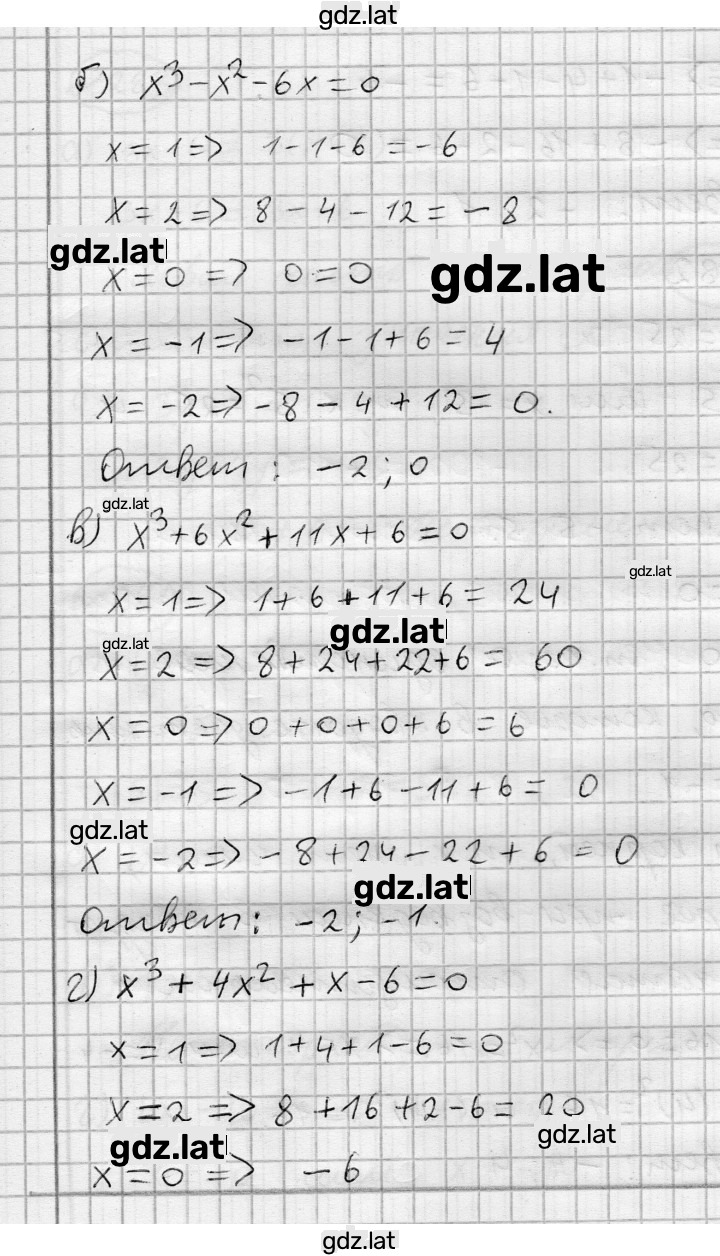 gdz.lat
б) x³ - x² - 6x = 0
x = 1 => 1 - 1 - 6 = -6
x = 2 => 8 - 4 - 12 = -8
gdz.lat
x = 0 => 0 = 0 gdz.lat
x = -1 => -1 - 1 + 6 = 4
x = -2 => -8 - 4 + 12 = 0.
Ответ: -2; 0
gdz.lat
в) x³ + 6x² + 11x + 6 = 0.
gdz.lat
x = 1 => 1 + 6 + 11 + 6 = 24
gdz.lat
gdz.lat
x = 2 => 8 + 24 + 22 + 6 = 60
x = 0 => 0 + 0 + 0 + 6 = 6
x = -1 => -1 + 6 - 11 + 6 = 0
gdz.lat
x = -2 => -8 + 24 - 22 + 6 = 0
gdz.lat
Ответ: -2; -1.
г) x³ + 4x² + x - 6 = 0
x = 1 => 1 + 4 + 1 - 6 = 0
x = 2 => 8 + 16 + 2 - 6 = 20
gdz.lat
gdz.lat
x = 0 => -6
gdz.lat